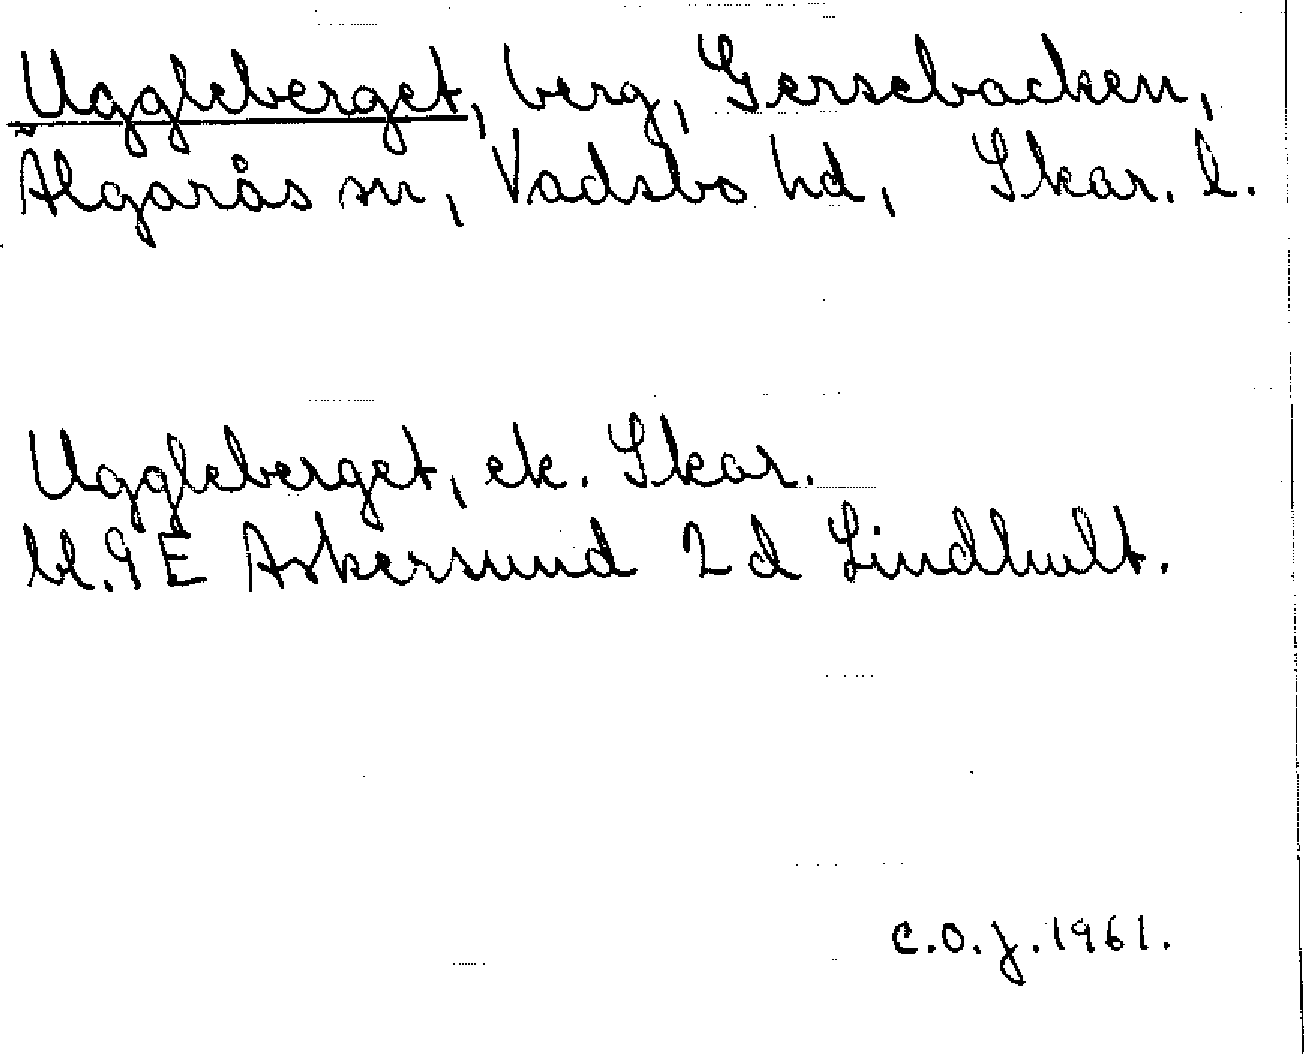 Uggleberget, berg, Gersebacken,
Älgarås sn, Vadsbo hd, Skar. l.
Uggleberget, ek. Skar.
bl. 9 E Askersund 2 d Lindhult.
C.O.J. 1961.